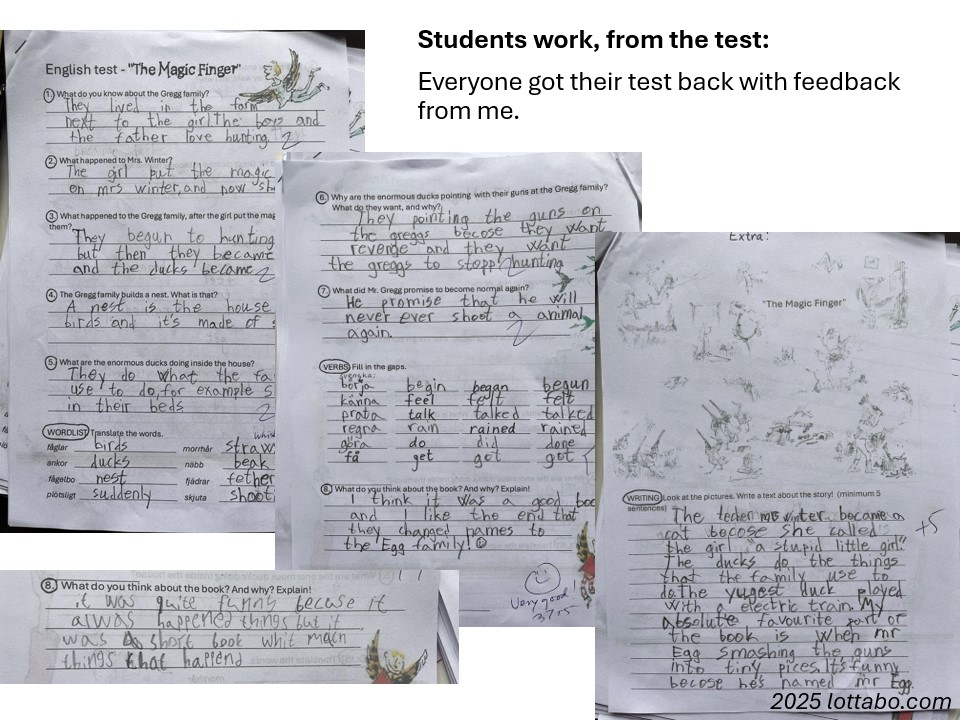 Students work, from the test:
Everyone got their test back with feedback
from me.
English test - "The Magic Finger"
1. What do you know about the Gregg family?
They lived in the farm
next to the girl. The boys and
the father love hunting. 2
2. What happened to Mrs. Winter?
The girl put the magic
on mrs winter, and now sh
3. What happened to the Gregg family, after the girl put the mag
them?
They begun to hunting
but then they became
and the ducks became 2
4. The Gregg family builds a nest. What is that?
A nest is the house
birds and it's made of s
5. What are the enormous ducks doing inside the house?
They do what the fa
use to do, for example s
in their beds 2
WORDLIST Translate the words.
fåglar birds mormhår straw
ankor ducks näbb beak
fågelbo nest fjädrar fether
plötsligt suddenly skjuta shoot
6. Why are the enormous ducks pointing with their guns at the Gregg family?
What do they want, and why?
They pointing the guns on
the greggs becose they want
revenge and they want
the greggs to stopp hunting
7. What did Mr. Gregg promise to become normal again?
He promise that he will
never ever shoot a animal
again. 2
VERBS Fill in the gaps.
svenska:
börja begin began begun
känna feel felt felt
prata talk talked talked
regna rain rained rained
göra do did done
få get got got
8. What do you think about the book? And why? Explain!
I think it was a good boo
and I like the end that
they changed names to
the "Egg family! ☺
Very good
37.5
8. What do you think about the book? And why? Explain!
it was quite funny becuse it
alwas happened things but it
was a short book whit mach
things that happend
Extra:
"The Magic Finger"
WRITING Look at the pictures. Write a text about the story! (minimum 5
sentences)
The techer mrs winter became a
cat becose she called
the girl "a stupid little girl."
The ducks do the things
that the family use to
do. The yugest duck played
with a electric train. My
absolute favourite part of
the book is when mr
Egg smashing the guns
into tiny pices. It's funny
becose he's named mr Egg.
+5
2025 lottabo.com